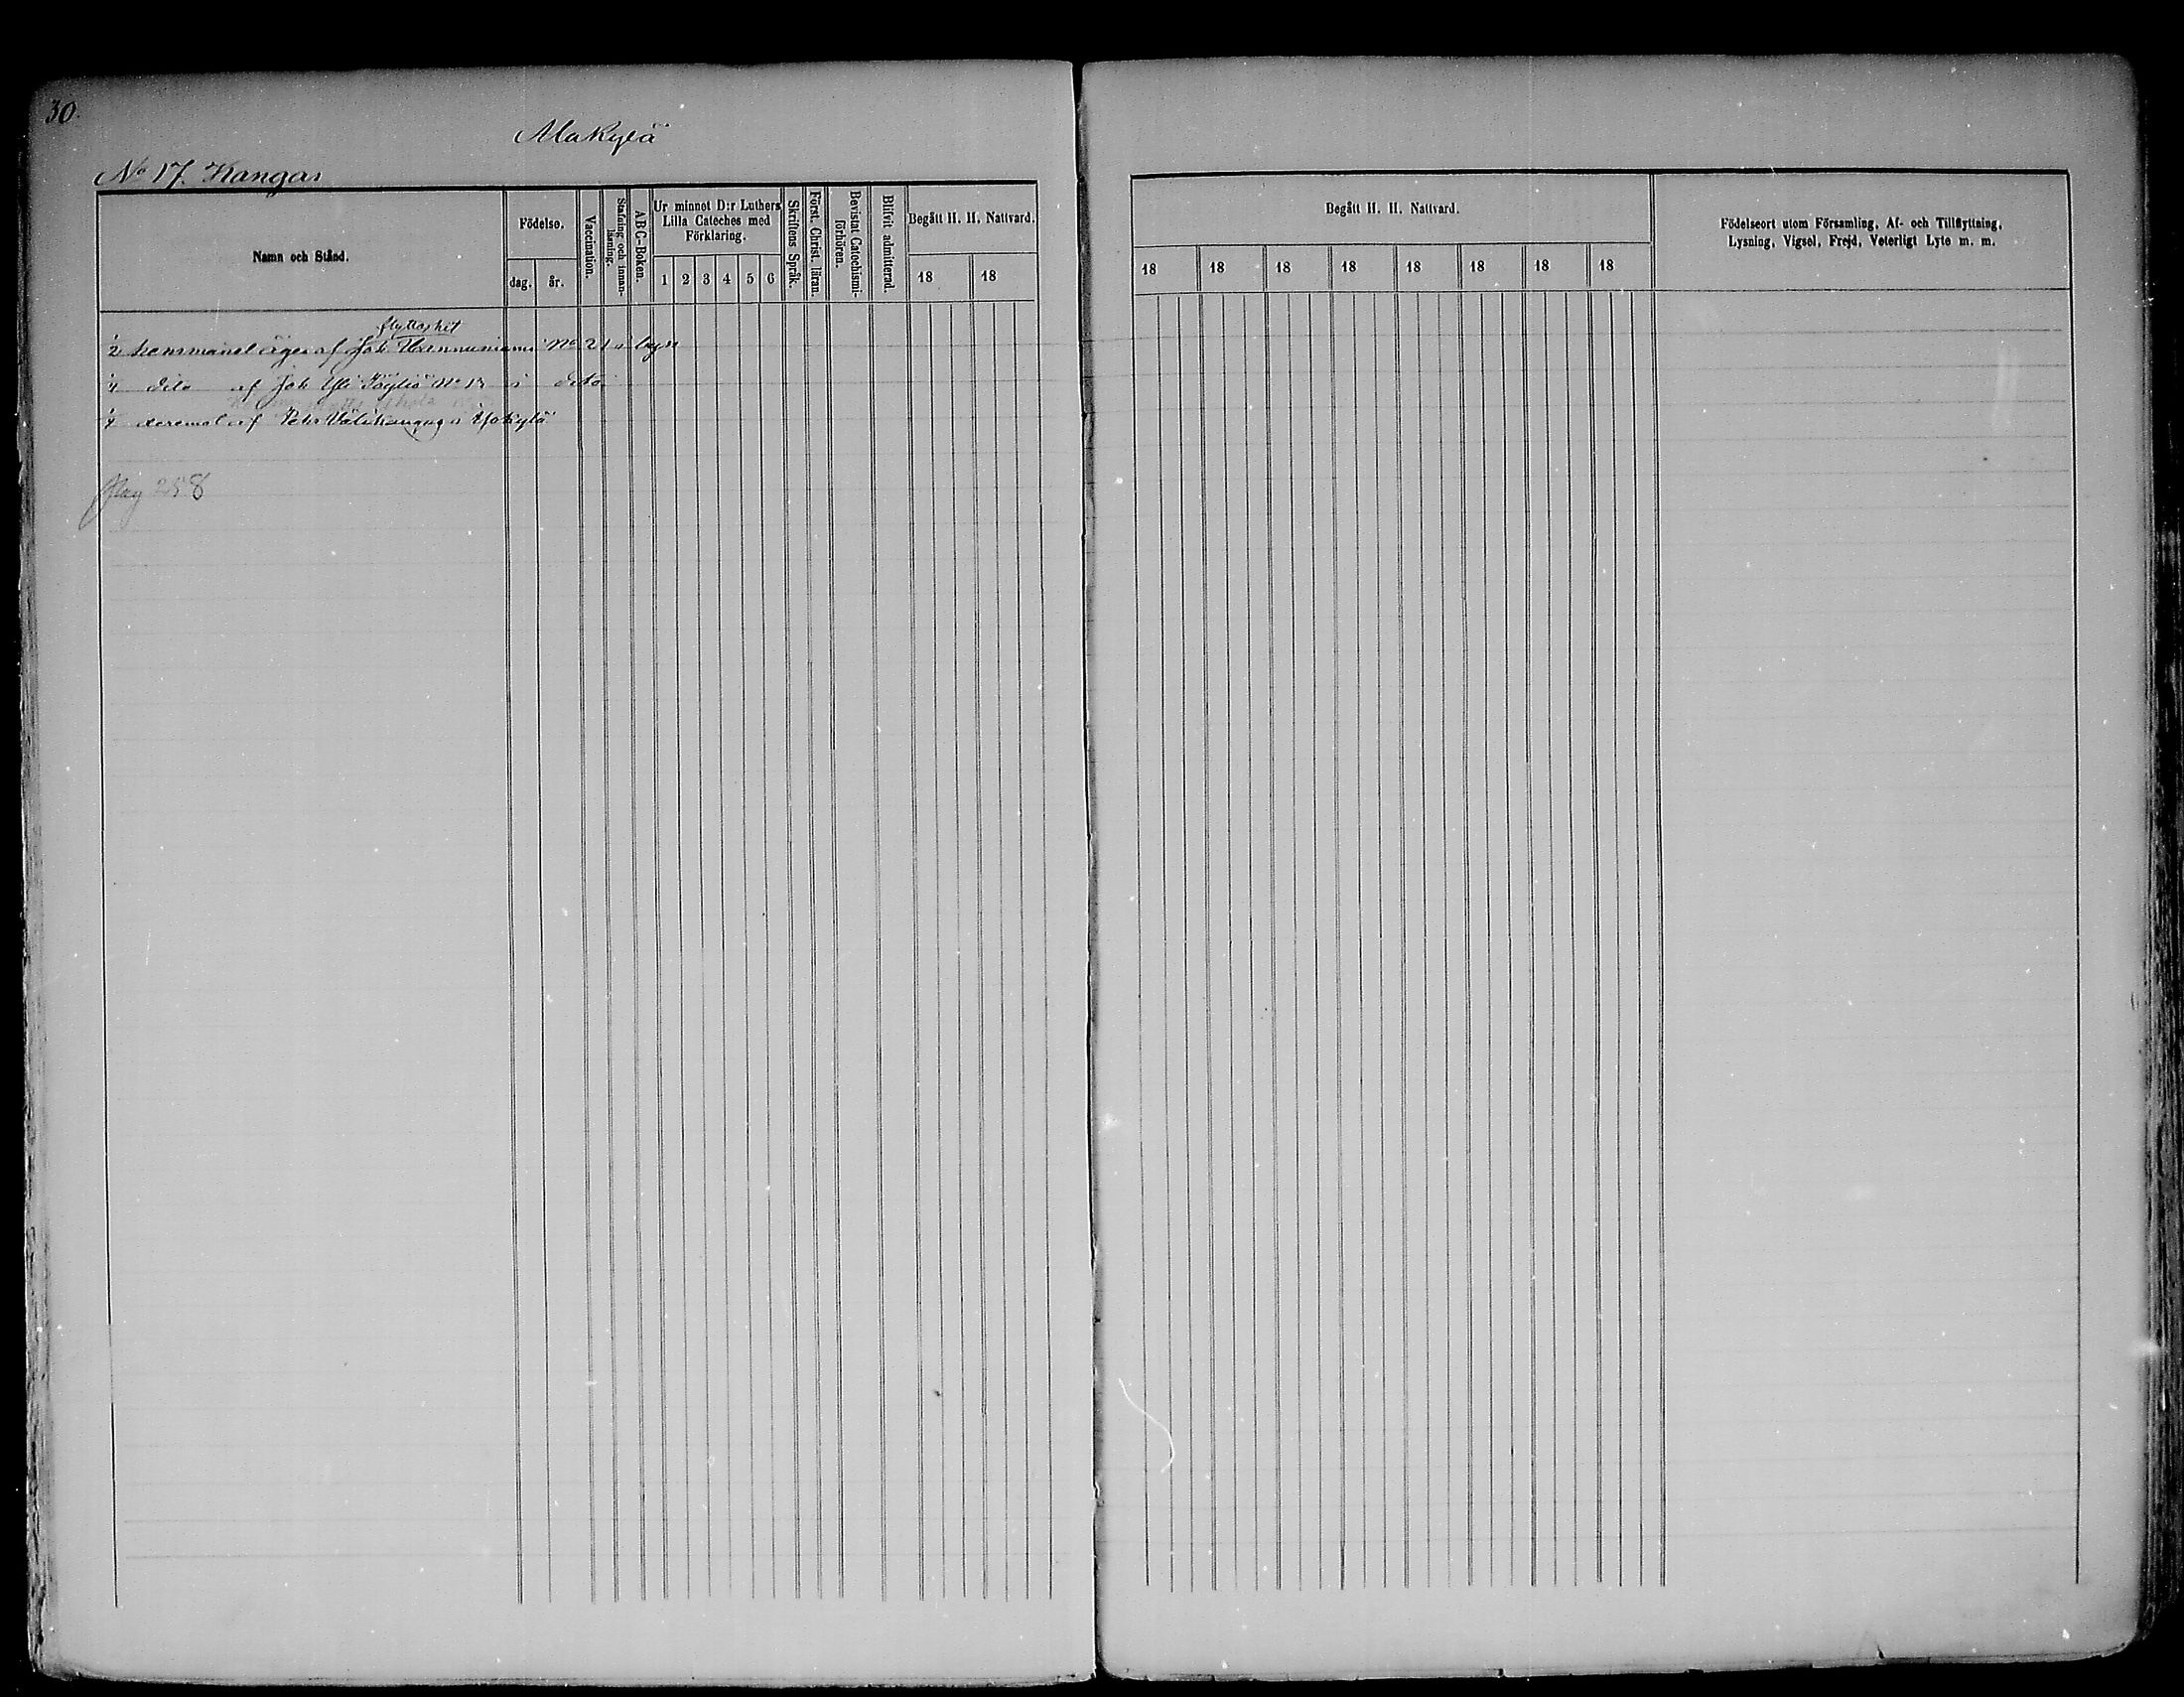 30.
Alakylä
No 17. Kangas
Namn och Stånd.
Födelse.
dag. år.
Vaccination.
Stafning och innan-
läsning.
ABC-Boken.
Ur minnet D:r Luthers
Lilla Cateches med
Förklaring.
1 2 3 4 5 6
Skriftens Språk.
Först. Christ. läran.
Bevistat Catechismi-
förhören.
Blifvit admitterad.
Begått H. H. Nattvard.
18 18
Begått H. H. Nattvard.
18 18 18 18 18 18 18 18
Födelseort utom Församling, Af- och Tillflyttning,
Lysning, Vigsel, Frejd, Veterligt Lyte m. m.
flyttat hit
hemmanet äges af Joh No 21
dito af Joh Yli No i dito
af Petr Välikangas i Ylikylä
Pag 258